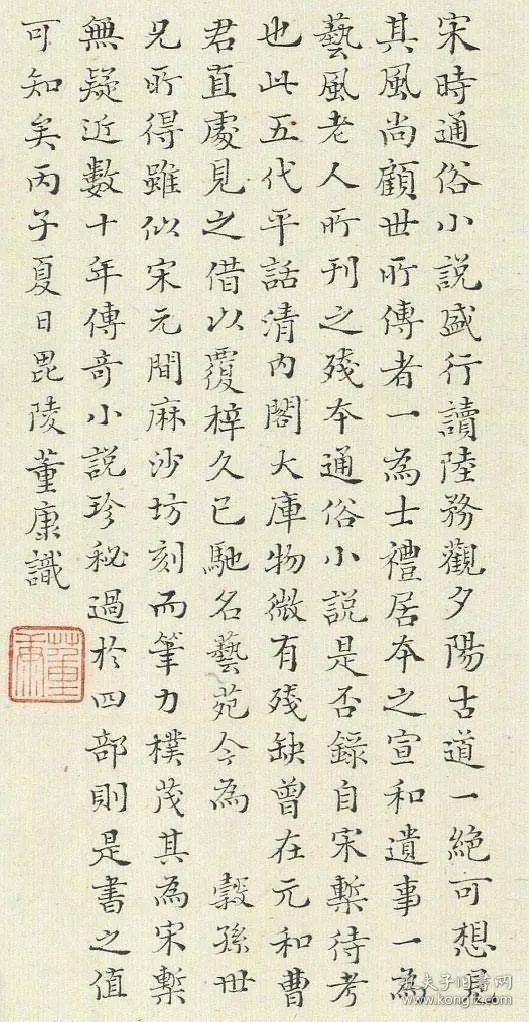 宋時通俗小說盛行讀陸務觀夕陽古道一絕可想見
其風尚顧世所傳者一為士禮居本之宣和遺事一為
藝風老人所刊之殘本通俗小說是否錄自宋槧待考
也此五代平話清內閣大庫物微有殘缺曾在元和曹
君直處見之借以覆梓久已馳名藝苑今為 穀孫世
兄所得雖似宋元間麻沙坊刻而筆力樸茂其為宋槧
無疑近數十年傳奇小說珍秘過於四部則是書之值
可知矣丙子夏日毘陵董康識
董康
孔夫子旧书网
www.kongfz.com